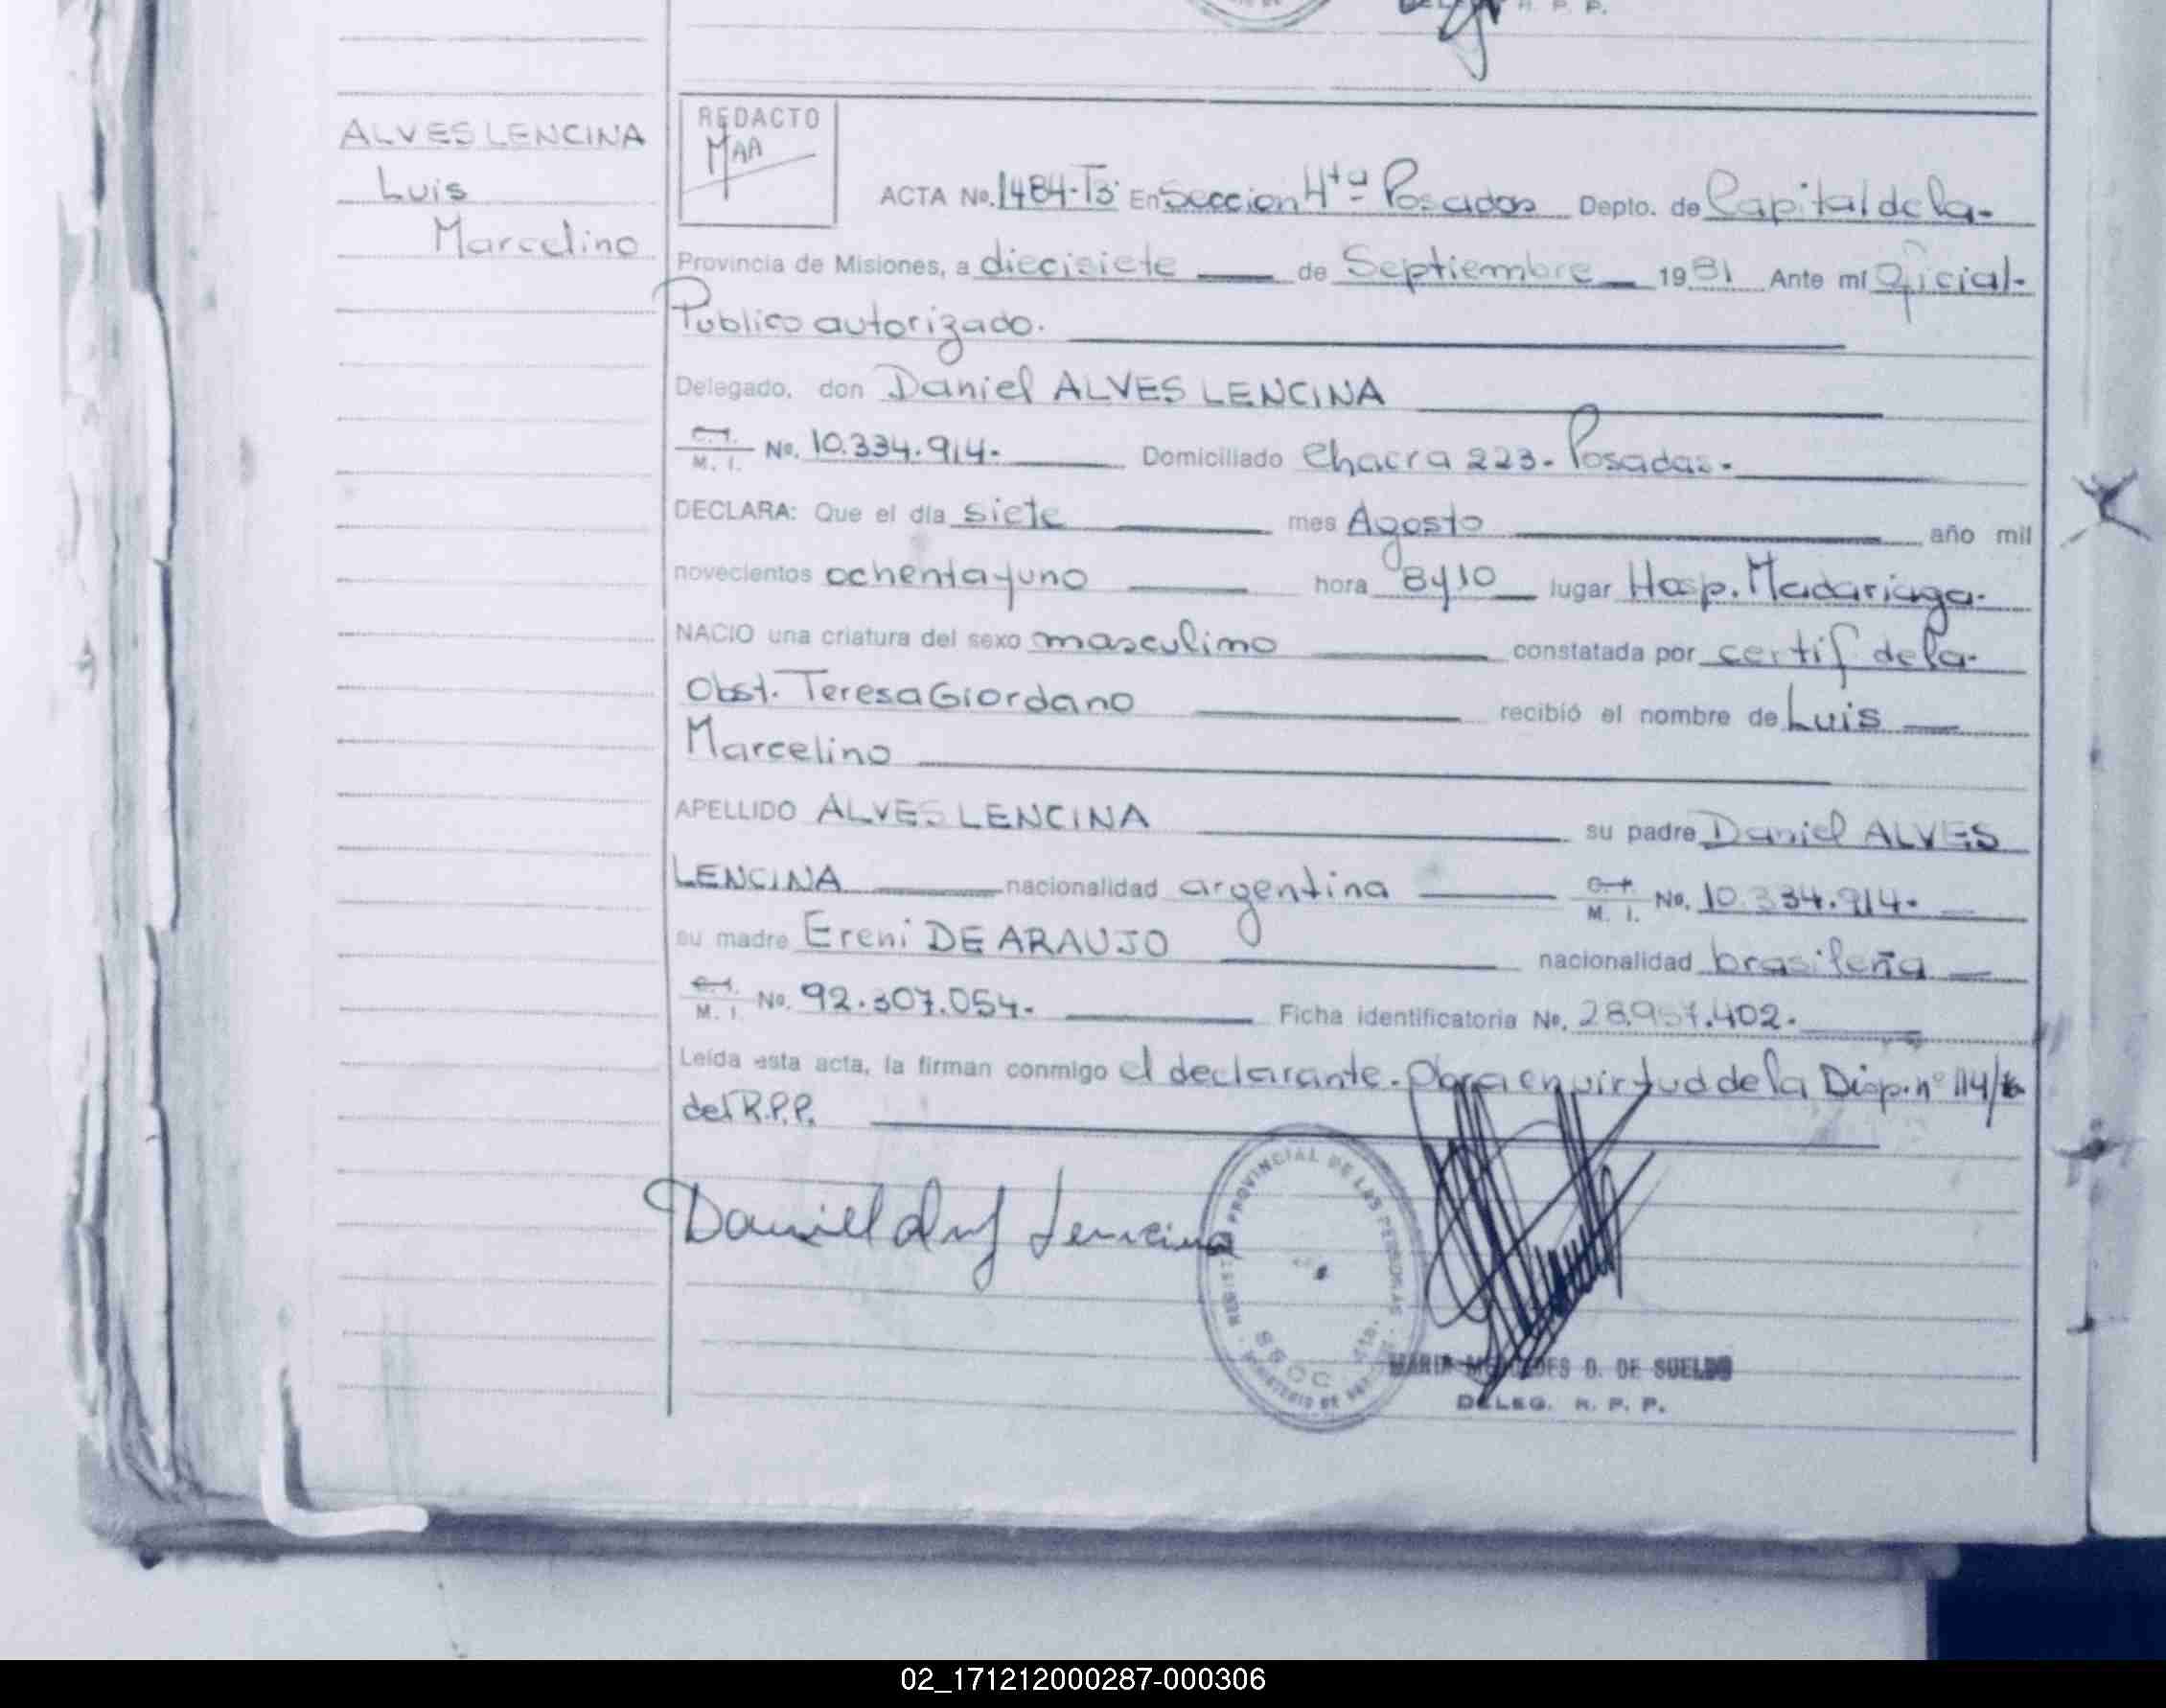 R. P. P.
ALVES LENCINA
Luis
Marcelino
REDACTO
MAA
ACTA No. 1484-T3 En Seccion 4ta Posadas Depto. de Capital de la-
Provincia de Misiones, a diecisiete de Septiembre 1981 Ante mí Oficial-
Publico autorizado.
Delegado, don Daniel ALVES LENCINA
C.I. M. I. No. 10.334.914- Domiciliado Chacra 223- Posadas-
DECLARA: Que el día siete mes Agosto año mil
novecientos ochenta y uno hora 8y10 lugar Hosp. Madariaga-
NACIO una criatura del sexo masculino constatada por certif de la-
Obst. Teresa Giordano recibió el nombre de Luis
Marcelino
APELLIDO ALVES LENCINA su padre Daniel ALVES
LENCINA nacionalidad argentina C.I. M. I. No. 10.334.914-
su madre Ereni DE ARAUJO nacionalidad brasileña
C.I. M. I. No. 92.307.054- Ficha identificatoria No. 28.957.402-
Leída esta acta, la firman conmigo el declarante. Obra en virtud de la Disp. nº 114/
del R.P.P.
Daniel Alves Lencina
REGISTRO PROVINCIAL DE LAS PERSONAS
SECC 4ta.
MARIA MERCEDES D. DE SUELDO
DELEG. R. P. P.
02_171212000287-000306